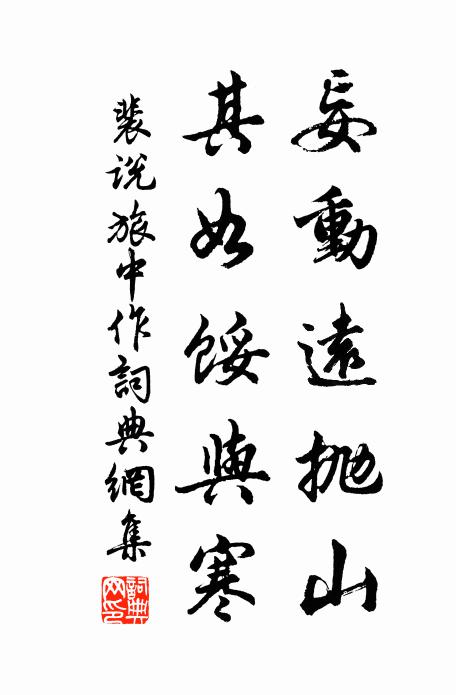 妄動遠抛山
其如餒與寒
裴说旅中作詞典網集
詞典网印